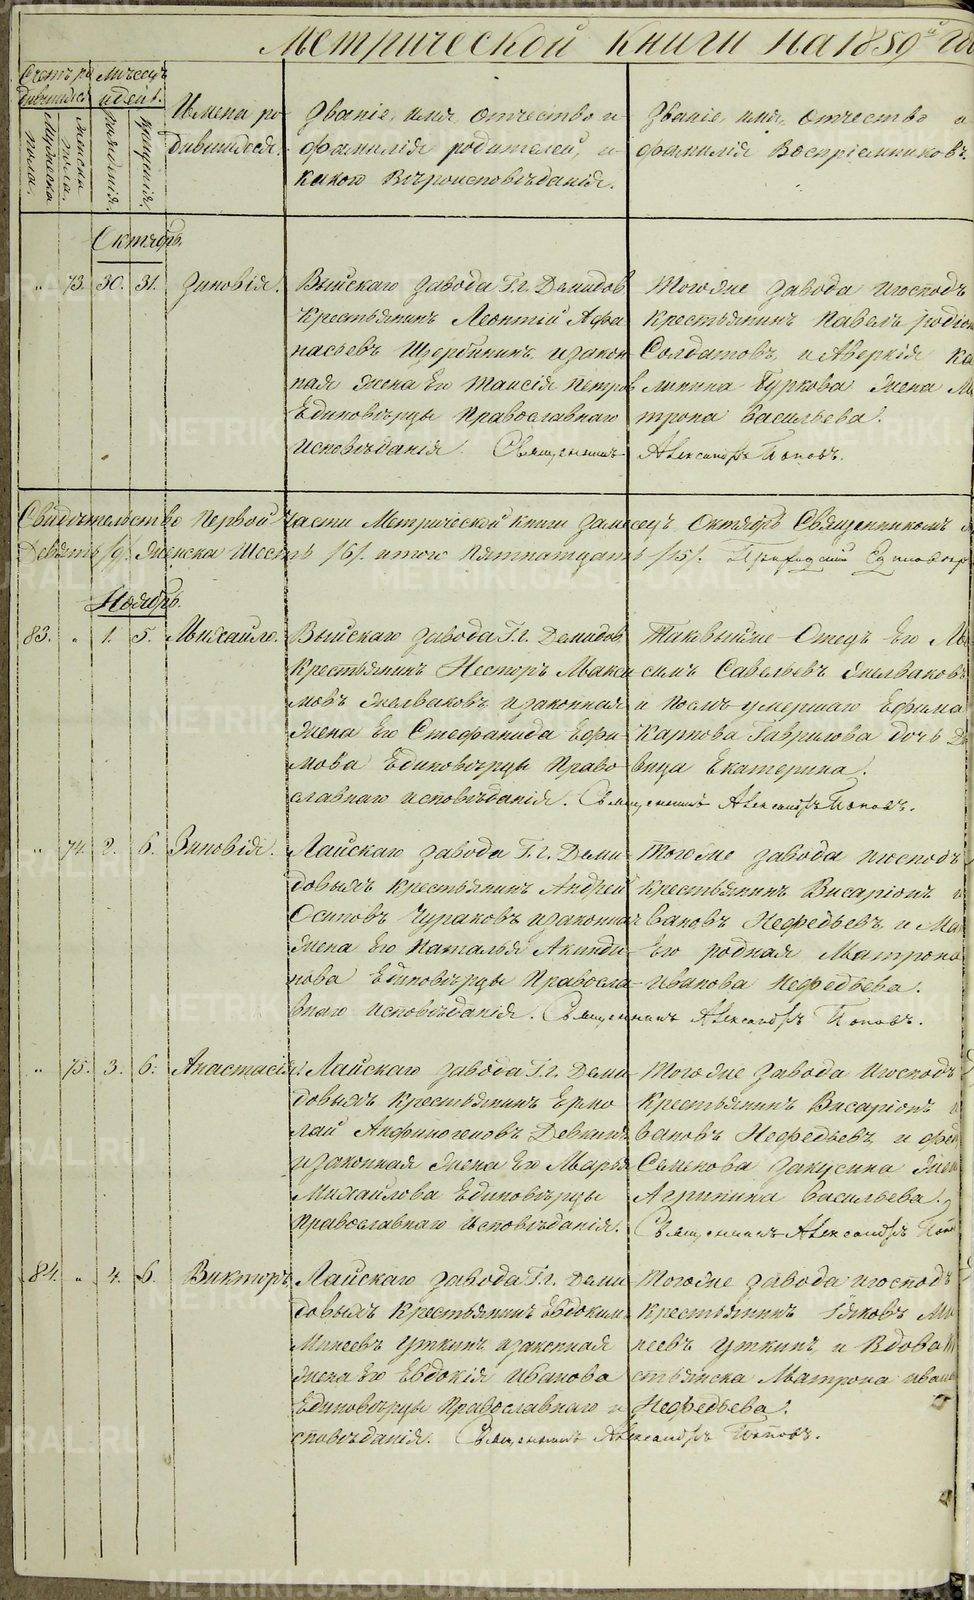 Метрической книги на 1859й Го
Счетъ ро
дившихся
Мѣсецъ
и день.
Мужеска
пола.
Женска
пола.
рожденія.
крещенія.
Имена ро-
дившихся.
Званіе, имя, отчество и
фамилія родителей, и
какого вѣроисповѣданія.
Званіе, имя, отчество и
фамилія воспріемниковъ.
Октябрь.
„ 73. 30. 31. Зиновія.
Выйскаго завода Г.г. Демидов
крестьянинъ Леонтій Афа
насьевъ Щербининъ и закон
ная жена его Таисія Петров
Единовѣрцы Православнаго
исповѣданія. Священникъ Александръ Поповъ.
Тогоже завода и господъ
крестьянинъ Павелъ Родіон
Солдатовъ, и Аверкія Ка
линина Буркова жена Ма
трона Васильева.
Свидѣтельство Первой части Метрической книги за месецъ Октябрь Священникомъ
Девять /9/. Женска Шесть /6/. итого Пятнатцать /15/. Приходскій Единовѣр
Ноябрь.
83. „ 1. 5. Михаило.
Выйскаго завода Г.г. Демидов
крестьянинъ Несторъ Макси
мовъ Желваковъ и законная
жена его Стефанида Ефи-
мова Единовѣрцы Право-
славнаго исповѣданія. Священникъ Александръ Поповъ.
Таквыйже Отецъ его Ма
симъ Савельевъ Желваковъ
и послѣ умершаго Ефима
Карпова Гаврилова дочь Дѣ
вица Екатерина.
„ 74. 2. 6. Зиновія.
Лайскаго завода Г.г. Деми-
довыхъ крестьянинъ Андрей
Осиповъ Чураковъ и законная
жена его Наталья Акинди-
нова Единовѣрцы Правосла-
внаго исповѣданія. Священникъ Александръ Поповъ.
Тогоже завода и господъ
крестьянинъ Висаріонъ И
вановъ Нефедьевъ, и Ма
его родная Матрона
Иванова Нефедьева.
„ 75. 3. 6. Анастасія.
Лайскаго завода Г.г. Деми-
довыхъ крестьянинъ Ермо
лай Анфиногеновъ Девкинъ
и законная жена его Марья
Михаилова Единовѣрцы
Православнаго исповѣданія.
Тогоже завода и господъ
крестьянинъ Висаріонъ И
вановъ Нефедьевъ, и Фед
Семенова Закусина жен
Агрипина Васильева.
Священникъ Александръ Попо
84. „ 4. 6. Викторъ
Лайскаго завода Г.г. Деми
довыхъ крестьянинъ Евдокимъ
Минеевъ Уткинъ и законная
жена его Евдокія Иванова
Единовѣрцы Православнаго и
сповѣданія. Священникъ Александръ Поповъ.
Тогоже завода и господъ
крестьянинъ Іяковъ Ми
неевъ Уткинъ, и Вдова
стьянска Матрона Иван
Нефедьева.